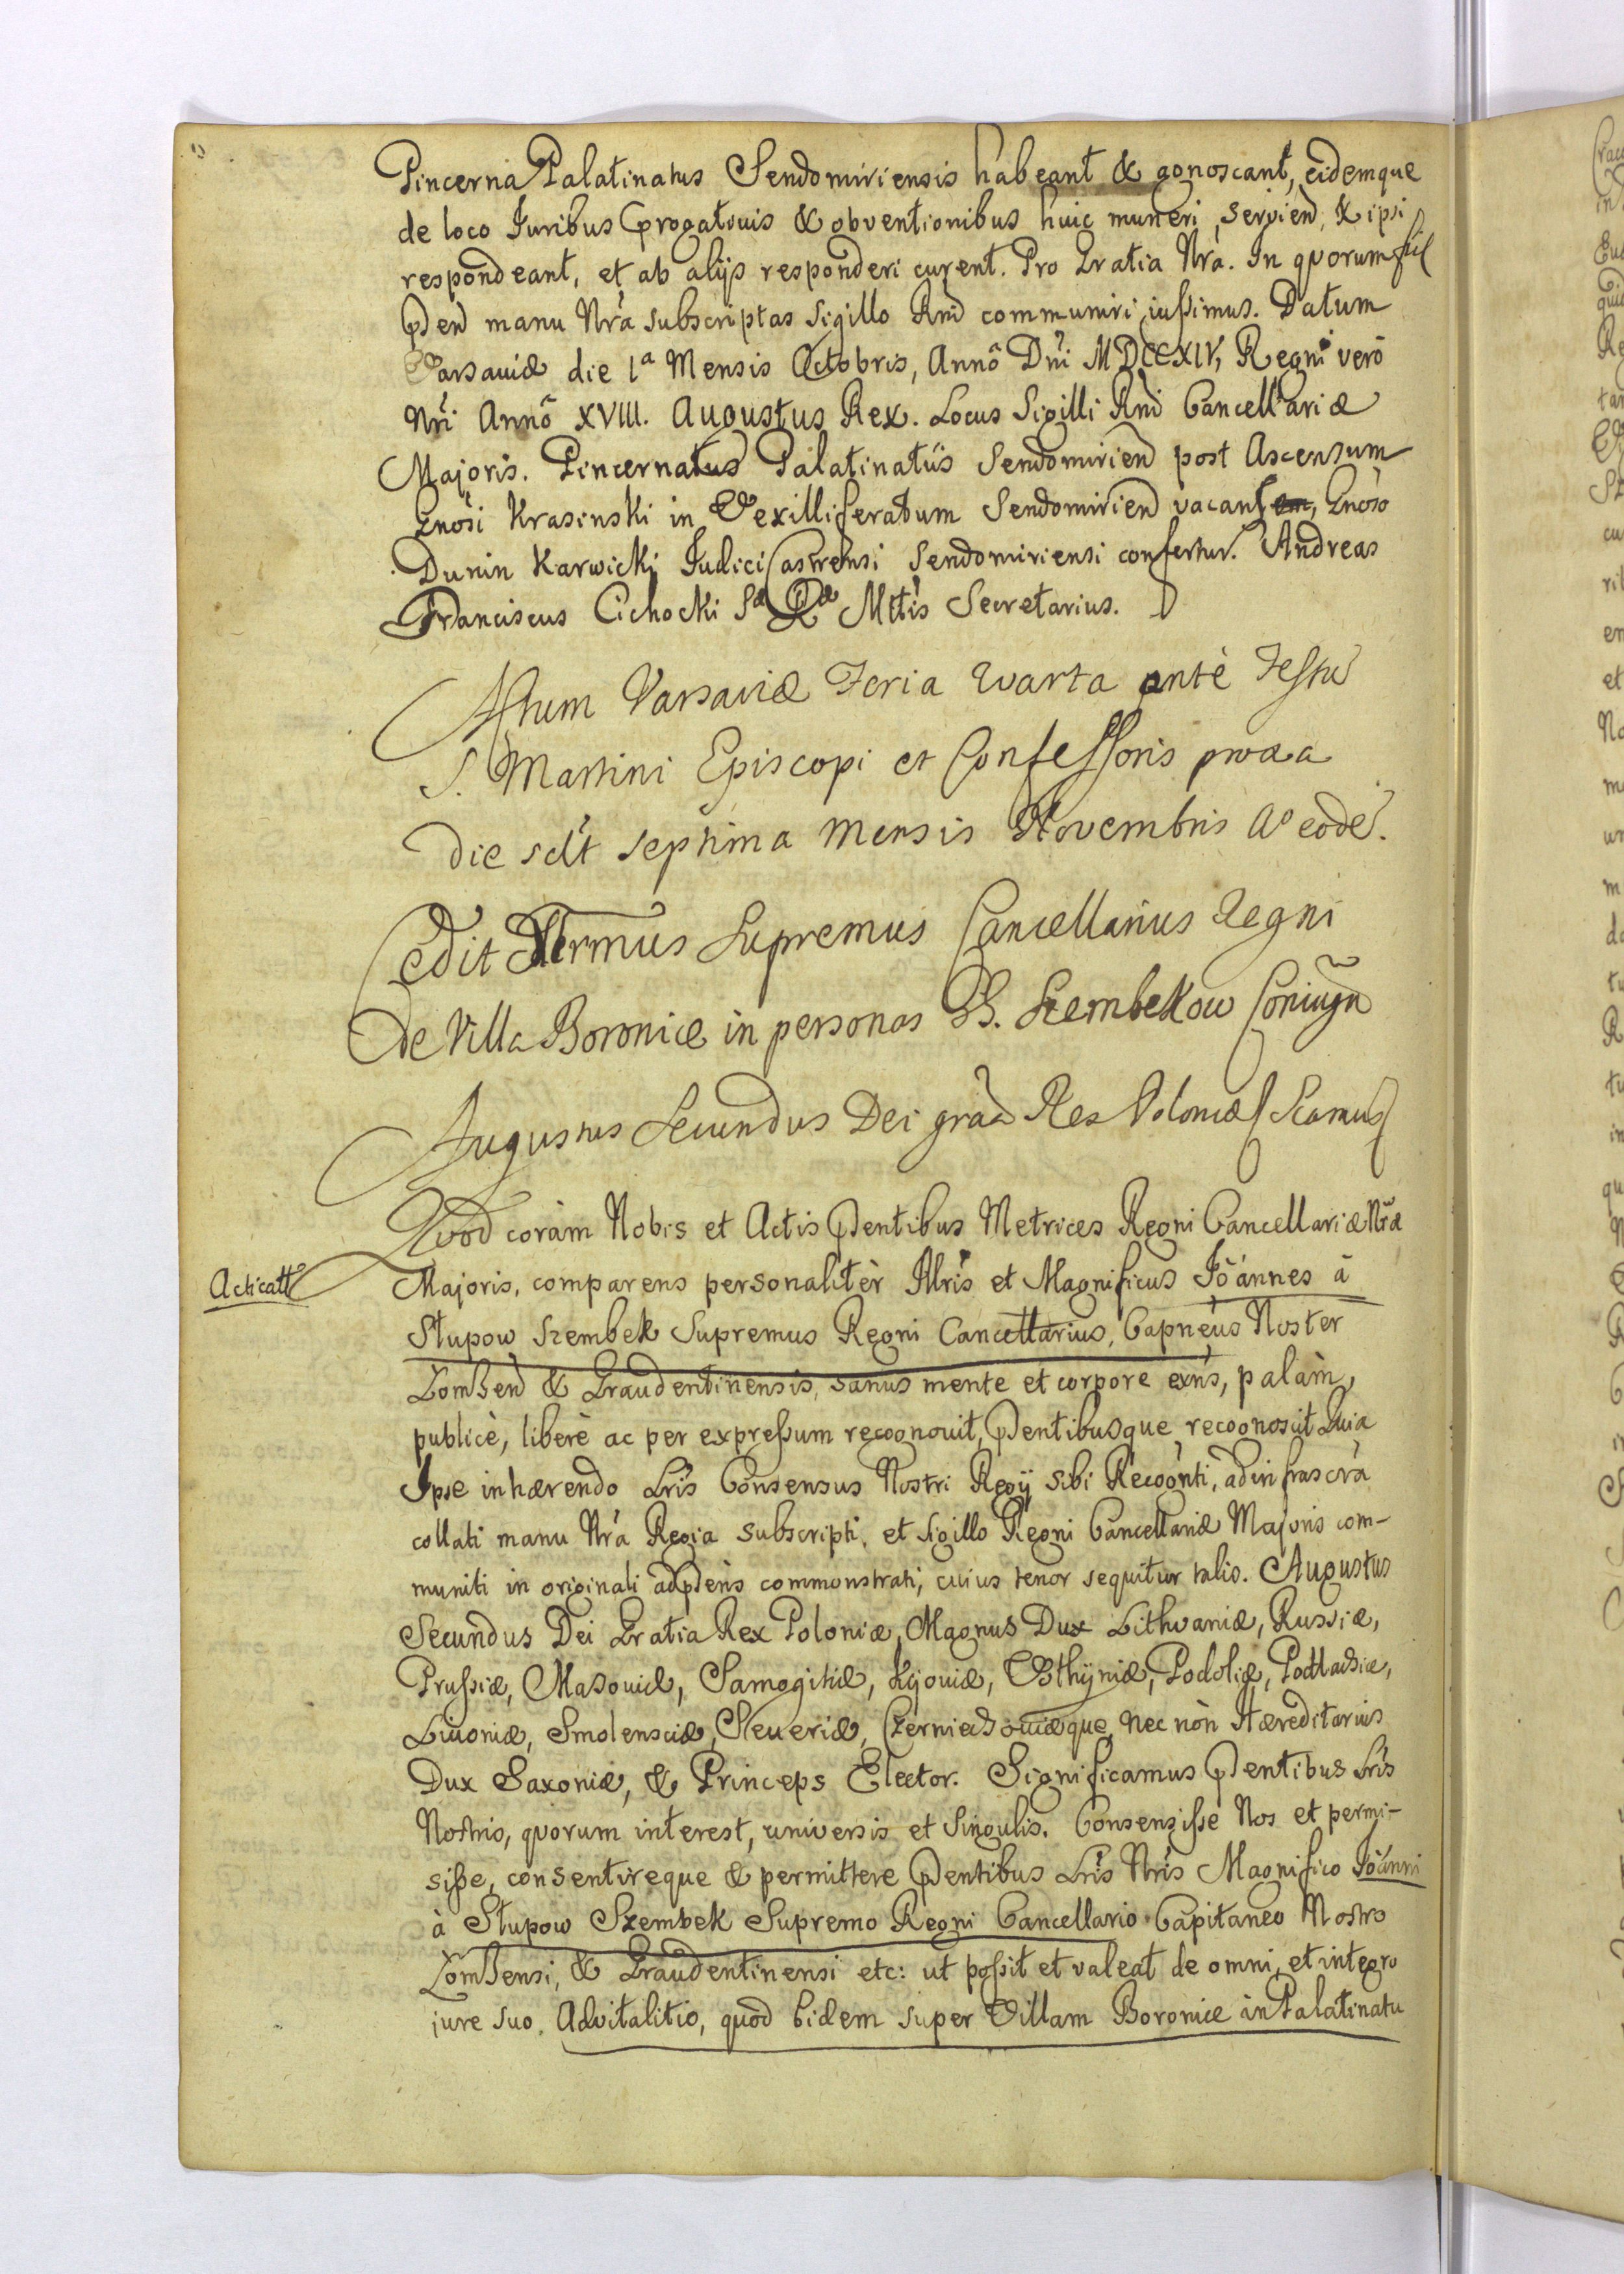 Pincerna Palatinatus Sendomiriensis habeant & agnoscant, eidemque
de loco Juribus Prrogatiuis & obventionibus huic muneri, servien, & ipsi
respondeant, et ab alijs responderi curent. Pro Gratia Nrã. In quorum fid
Psen manu Nrã subscriptas Sigillo Rni communiri iussimus. Datum
Varsaviæ die 1a Mensis Octobris, Annô Dni MDCCXIV, Regni verô
Nri Annô XVIII. Augustus Rex. Locus Sigilli Rni Cancellariæ
Majoris. Pincernatus Palatinatûs Sendomirien post Ascensum
Gnosi Krasinski in Vexilliferatum Sendomirien vacans, Gnoso
Dunin Karwicki Judici Castrensi Sendomiriensi confertur. Andreas
Franciscus Cichocki Sæ Ræ Mttis Secretarius.
Actum Varsaviæ Feria Quarta antè Festu
S. Martini Episcopi et Confessoris proxa
die sclt septima Mensis Novembris Ao eode.
Cedit Illrmus Supremus Cancellarius Regni
de Villa Boronice in personas GG. Szembekow Coniugu
Augustus Secundus Dei grãa Rex Poloniæ Scamus
Quod coràm Nobis et Actis Psentibus Metrices Regni Cancellariæ Nræ
Acticatt
Majoris, comparens personalitèr Illris et Magnificus Joánnes â
Słupow Szembek Supremus Regni Cancellarius, Capneus Noster
Łomzen & Graudentinensis, sanus mente et corpore exns, palàm,
publicè, liberè ac per expressum recognouit, Psentibusque recognoscit Quia
Ipse inhærendo Lris Consensus Nostri Regij sibi Recognti, ad infrascra
collati manu Nrã Regia subscripti, et Sigillo Regni Cancellariæ Majoris com-
muniti in originali ad Psens commonstrati, cuius tenor sequitur talis. Augustus
Secundus Dei Gratia Rex Poloniæ, Magnus Dux Lithvaniæ, Russiæ,
Prussiæ, Masoviæ, Samogitiæ, Kijoviæ, Volhyniæ, Podoliæ, Podlachiæ,
Livoniæ, Smolensciæ, Severiæ, Czerniechoviæque, nec nòn Hæreditarius
Dux Saxoniæ, & Princeps Elector. Significamus Psentibus Lris
Nostris, quorum interest, universis et Singulis. Consensisse Nos et permi-
sisse, consentireque & permittere Psentibus Lris Nris Magnifico Joánni
à Słupow Szembek Supremo Regni Cancellario Capitaneo Nostro
Łomzensi, & Graudentinensi etc: ut possit et valeat de omni, et integro
iure suo Advitalitio, quod eidem super Villam Boronice in Palatinatu